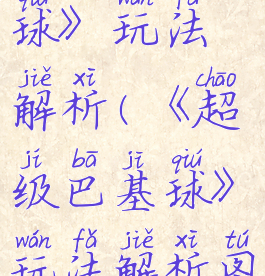 qiú wán fǎ
球》玩法
jiě xī chāo
解析(《超
jí bā jī qiú
级巴基球》
wán fǎ jiě xī tú
玩法解析图